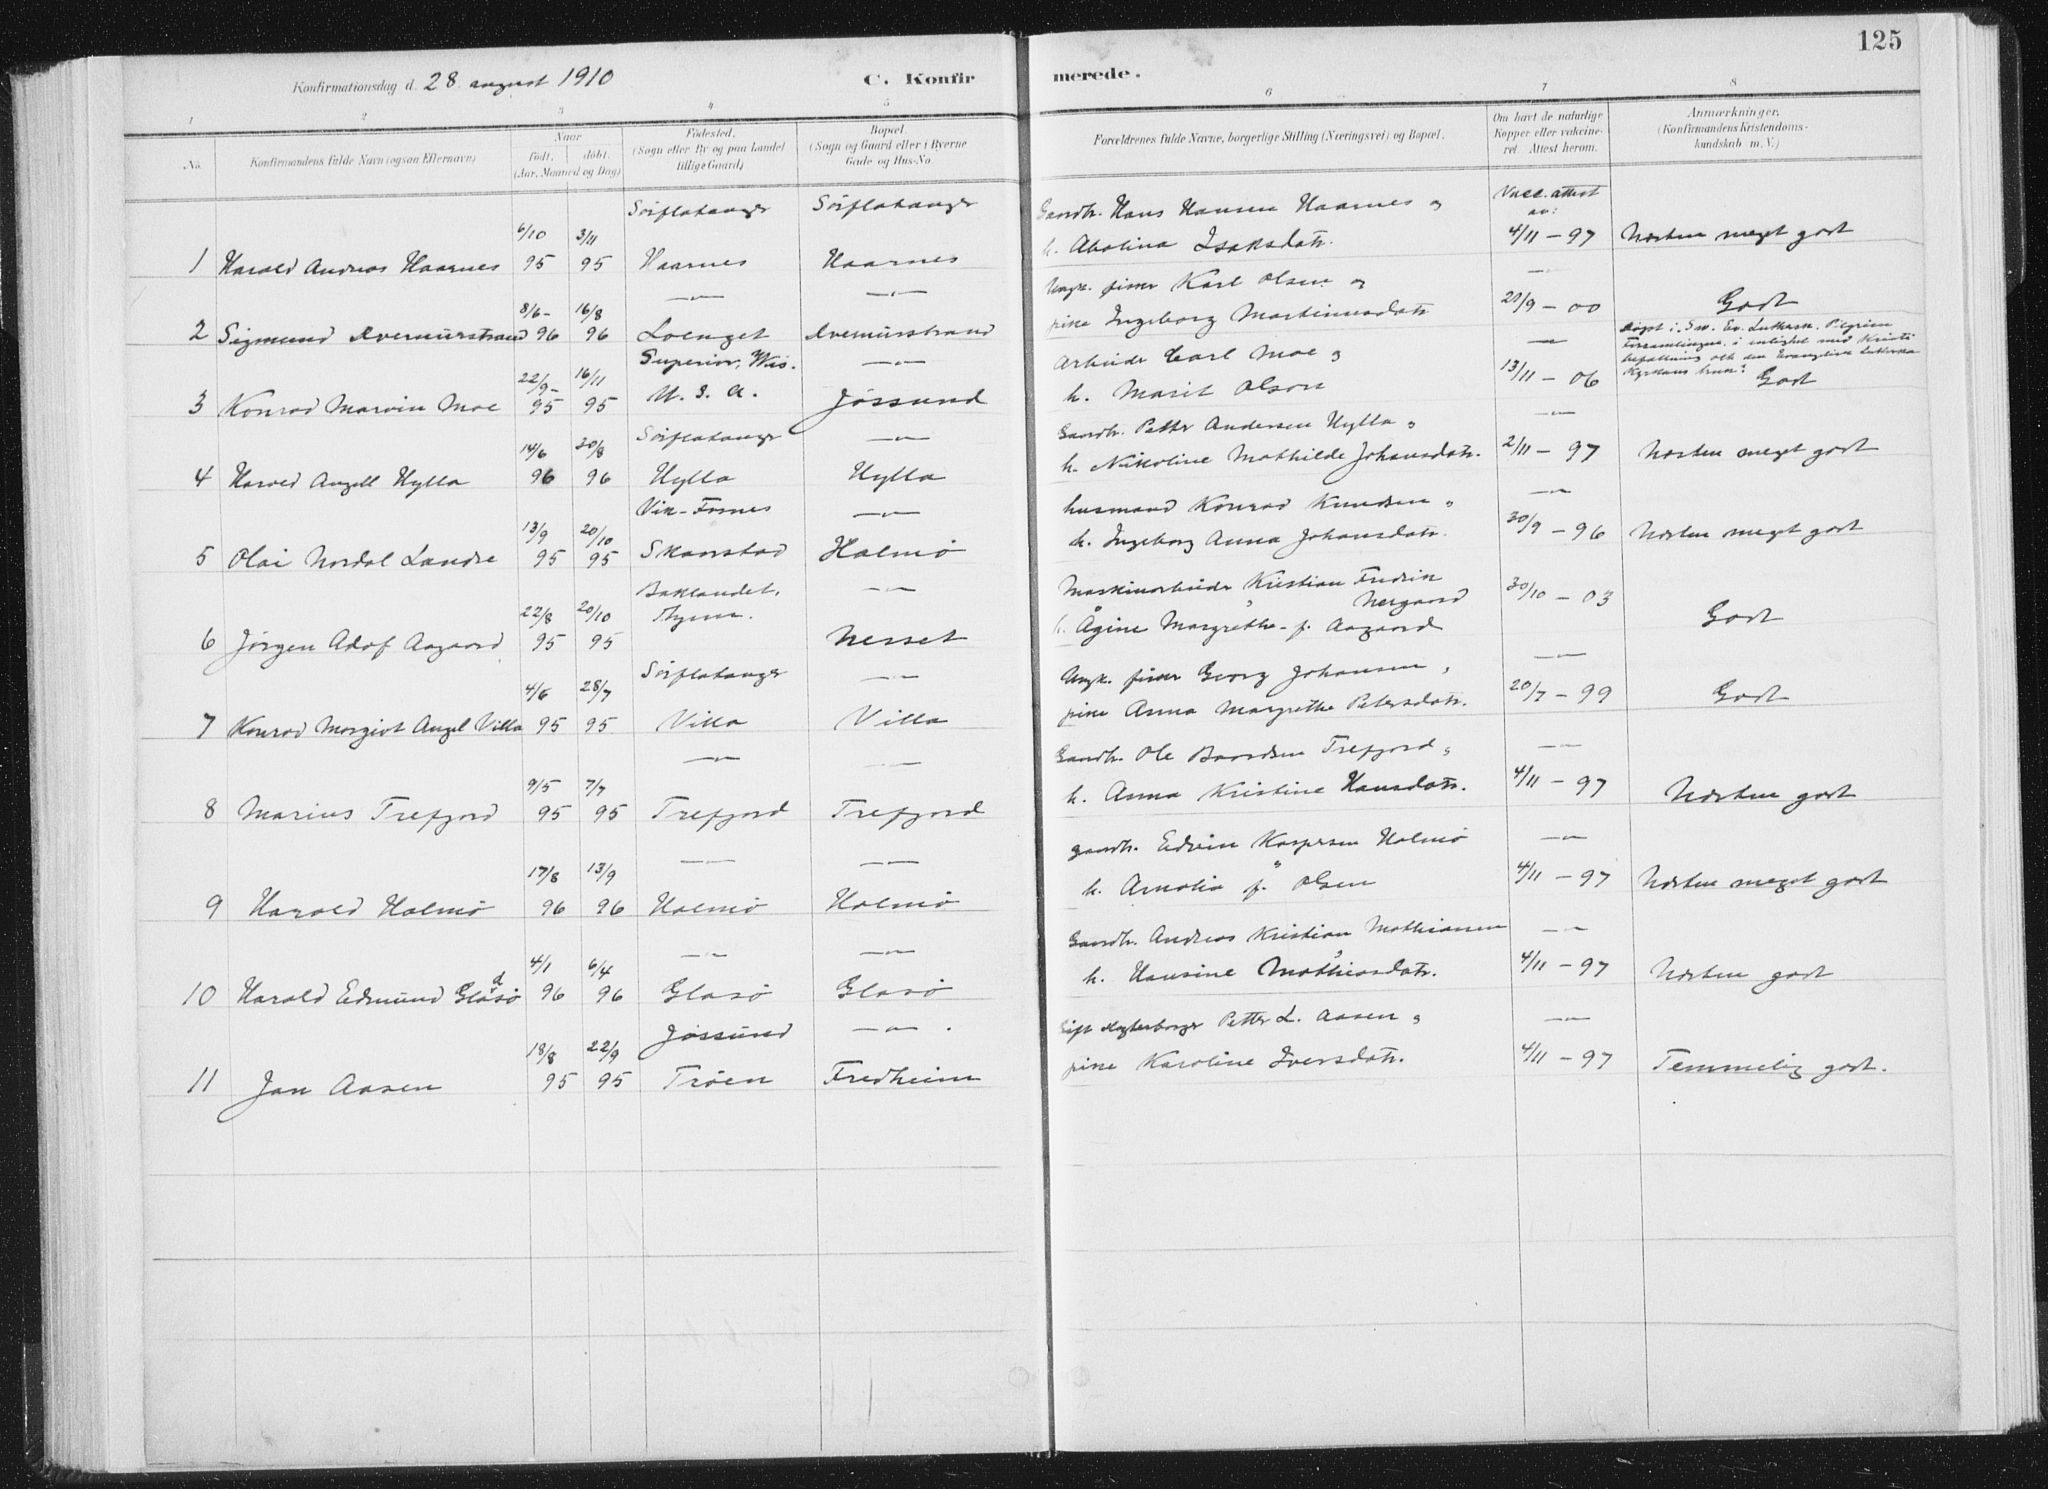 125
Konfirmationsdag d. 28 august 1910
C. Konfirmerede.
1 2 3 4 5 6 7 8
No.
Konfirmandens fulde Navn (ogsaa Efternavn)
Naar
født. døbt.
(Aar, Maaned og Dag)
Fødested.
(Sogn eller By og paa Landet
tillige Gaard)
Bopæl.
(Sogn og Gaard eller i Byerne
Gade og Hus-No.
Forældrenes fulde Navne, borgerlige Stilling (Næringsvei) og Bopæl.
Om havt de naturlige
Kopper eller vakcine-
ret. Attest herom.
Anmærkninger.
(Konfirmandens Kristendoms-
kundskab m. V.)
Sørflatanger Sørflatanger Gaardbr. Hans Hansen Haarnes og Vacc. attest
av:
6/10 3/11 h. Abolina Isaksdatr. 4/11 - 97 Næsten meget godt
1 Harald Andreas Haarnes 95 95 Haarnes Haarnes
—"— —"— Ungk. fisker Karl Olsen og —"—
8/6- 16/8 pike Ingeborg Martinusdatr 20/9 - 00 Godt
2 Sigmund Kvernurstrand 96 96 Loenget Kvernurstrand
Superior, Wis. —"— Arbeider Carl Moe og —"— døpt i Sw. Ev. Luthersk. Pilgrim
Forsamlingen, i enlighet med Kristi
befallning och den Evangelisk Lutherska
Kyrkans bruk.
22/9- 16/11 U. S. A. h. Marit Olson 13/11 - 06 Godt
3 Konrad Marvin Moe 95 95 Jøssund
Sørflatanger —"— Gaardbr. Petter Andersen Hylla og —"—
14/6 30/8 h. Nikoline Mathilde Johansdatr. 2/11 - 97 Næsten meget godt
4 Harold Angell Hylla 96 96 Hylla Hylla
Vik-Fosnes —"— husmand Konrad Knudsen og —"—
13/9 20/10 h. Ingeborg Anna Johansdatr. 30/9 - 96 Næsten meget godt
5 Olai Nordal Landre 95 95 Skarstad Halmø
Baklandet, —"— Maskinarbeider Kristian Fredrik
Nergaard 30/10 - 03
22/8 20/10 Thjem. h. Ågine Margrethe f. Aagaard Godt
6 Jørgen Adof Aagaard 95 95 Nesset
Sørflatanger —"— Ungk. fisker Georg Johansen og —"—
4/6 28/7 pike Anna Margrethe Petersdatr. 20/7 - 99 Godt
7 Konrad Morgivt Angel Villa 95 95 Villa Villa
—"— —"— Gaardbr. Ole Baardsen Trefjord og —"—
9/5 7/7 h. Anna Kristine Hansdatr. 4/11 - 97 Næsten godt
8 Marius Trefjord 95 95 Trefjord Trefjord
—"— —"— gaardbr. Edvin Kaspersen Halmø —"—
17/8 13/9 h. Amalia f. Olsen 4/11 - 97 Næsten meget godt
9 Harald Halmø 96 96 Halmø Halmø
—"— —"— Gaardbr. Andreas Kristian Mathiasen —"—
4/1 6/4 h. Hansine Mathiasdatr. 4/11 - 97 Næsten godt
10 Harald Edmund Gladsø 96 96 Glasø Glasø
Jøssund —"— Gift Petter L. Aasen og —"—
18/8 22/9 pike Karoline Iversdatr. 4/11 - 97 Temmelig godt.
11 Jan Aasen 95 95 Trøen Fredheim